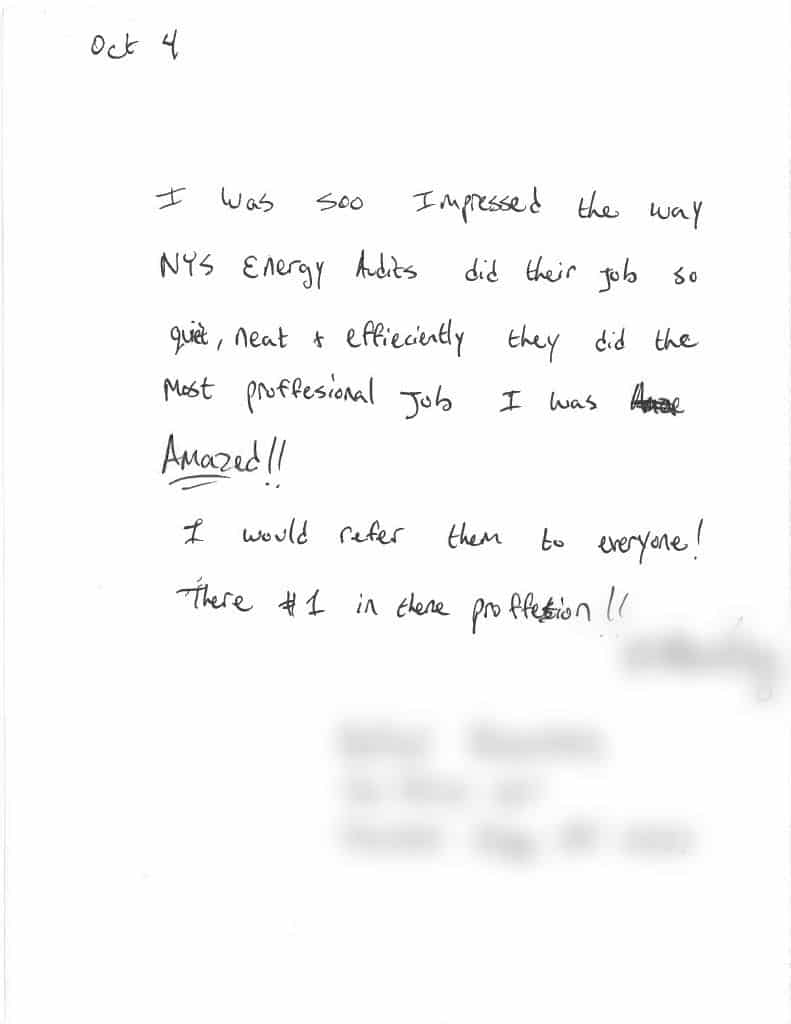 Oct 4
I was soo Impressed the way
NYS Energy Audits did their job so
quiet, neat + effieciently they did the
Most proffesional Job I was
Amazed!!
I would refer them to everyone!
There #1 in there proffession!!